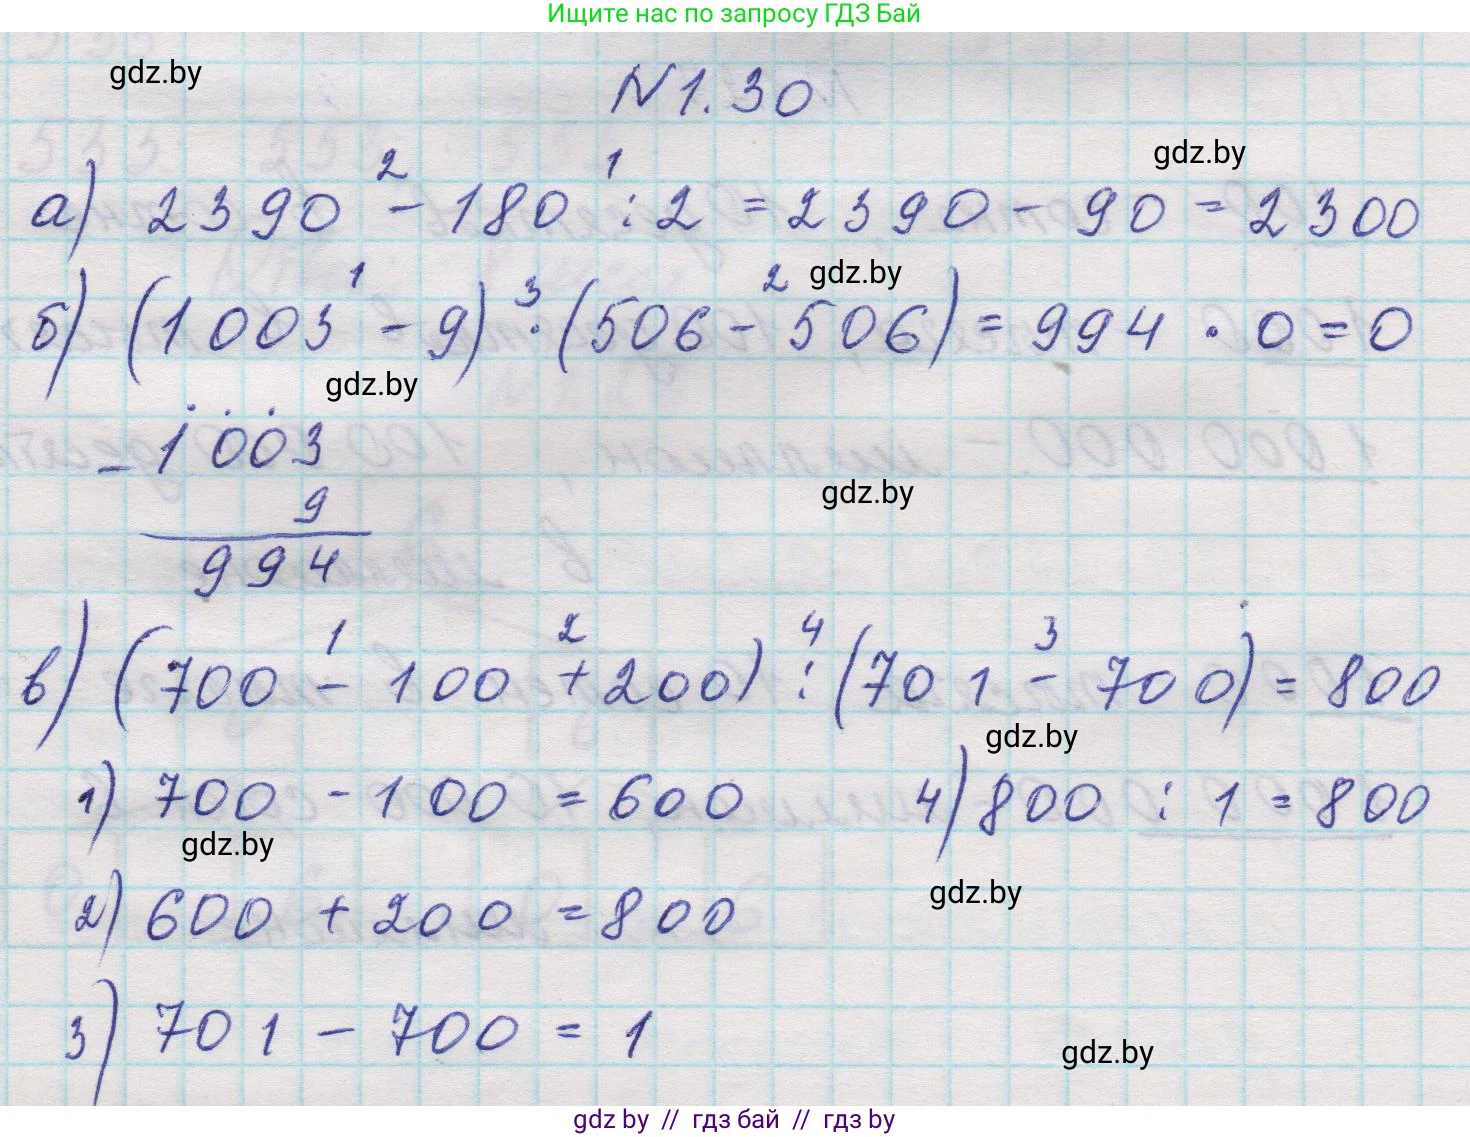 Ищите нас по запросу ГДЗ Бай
gdz.by
N 1.30
gdz.by
2 1
а) 2390 - 180 : 2 = 2390 - 90 = 2300
1 3 2 gdz.by
б) (1003 - 9) · (506 - 506) = 994 · 0 = 0
gdz.by
- 1003
9
gdz.by
994
1 2 4 3
в) (700 - 100 + 200) : (701 - 700) = 800
gdz.by
1) 700 - 100 = 600 4) 800 : 1 = 800
gdz.by
gdz.by
2) 600 + 200 = 800
3) 701 - 700 = 1
gdz.by
gdz by // гдз бай // гдз by